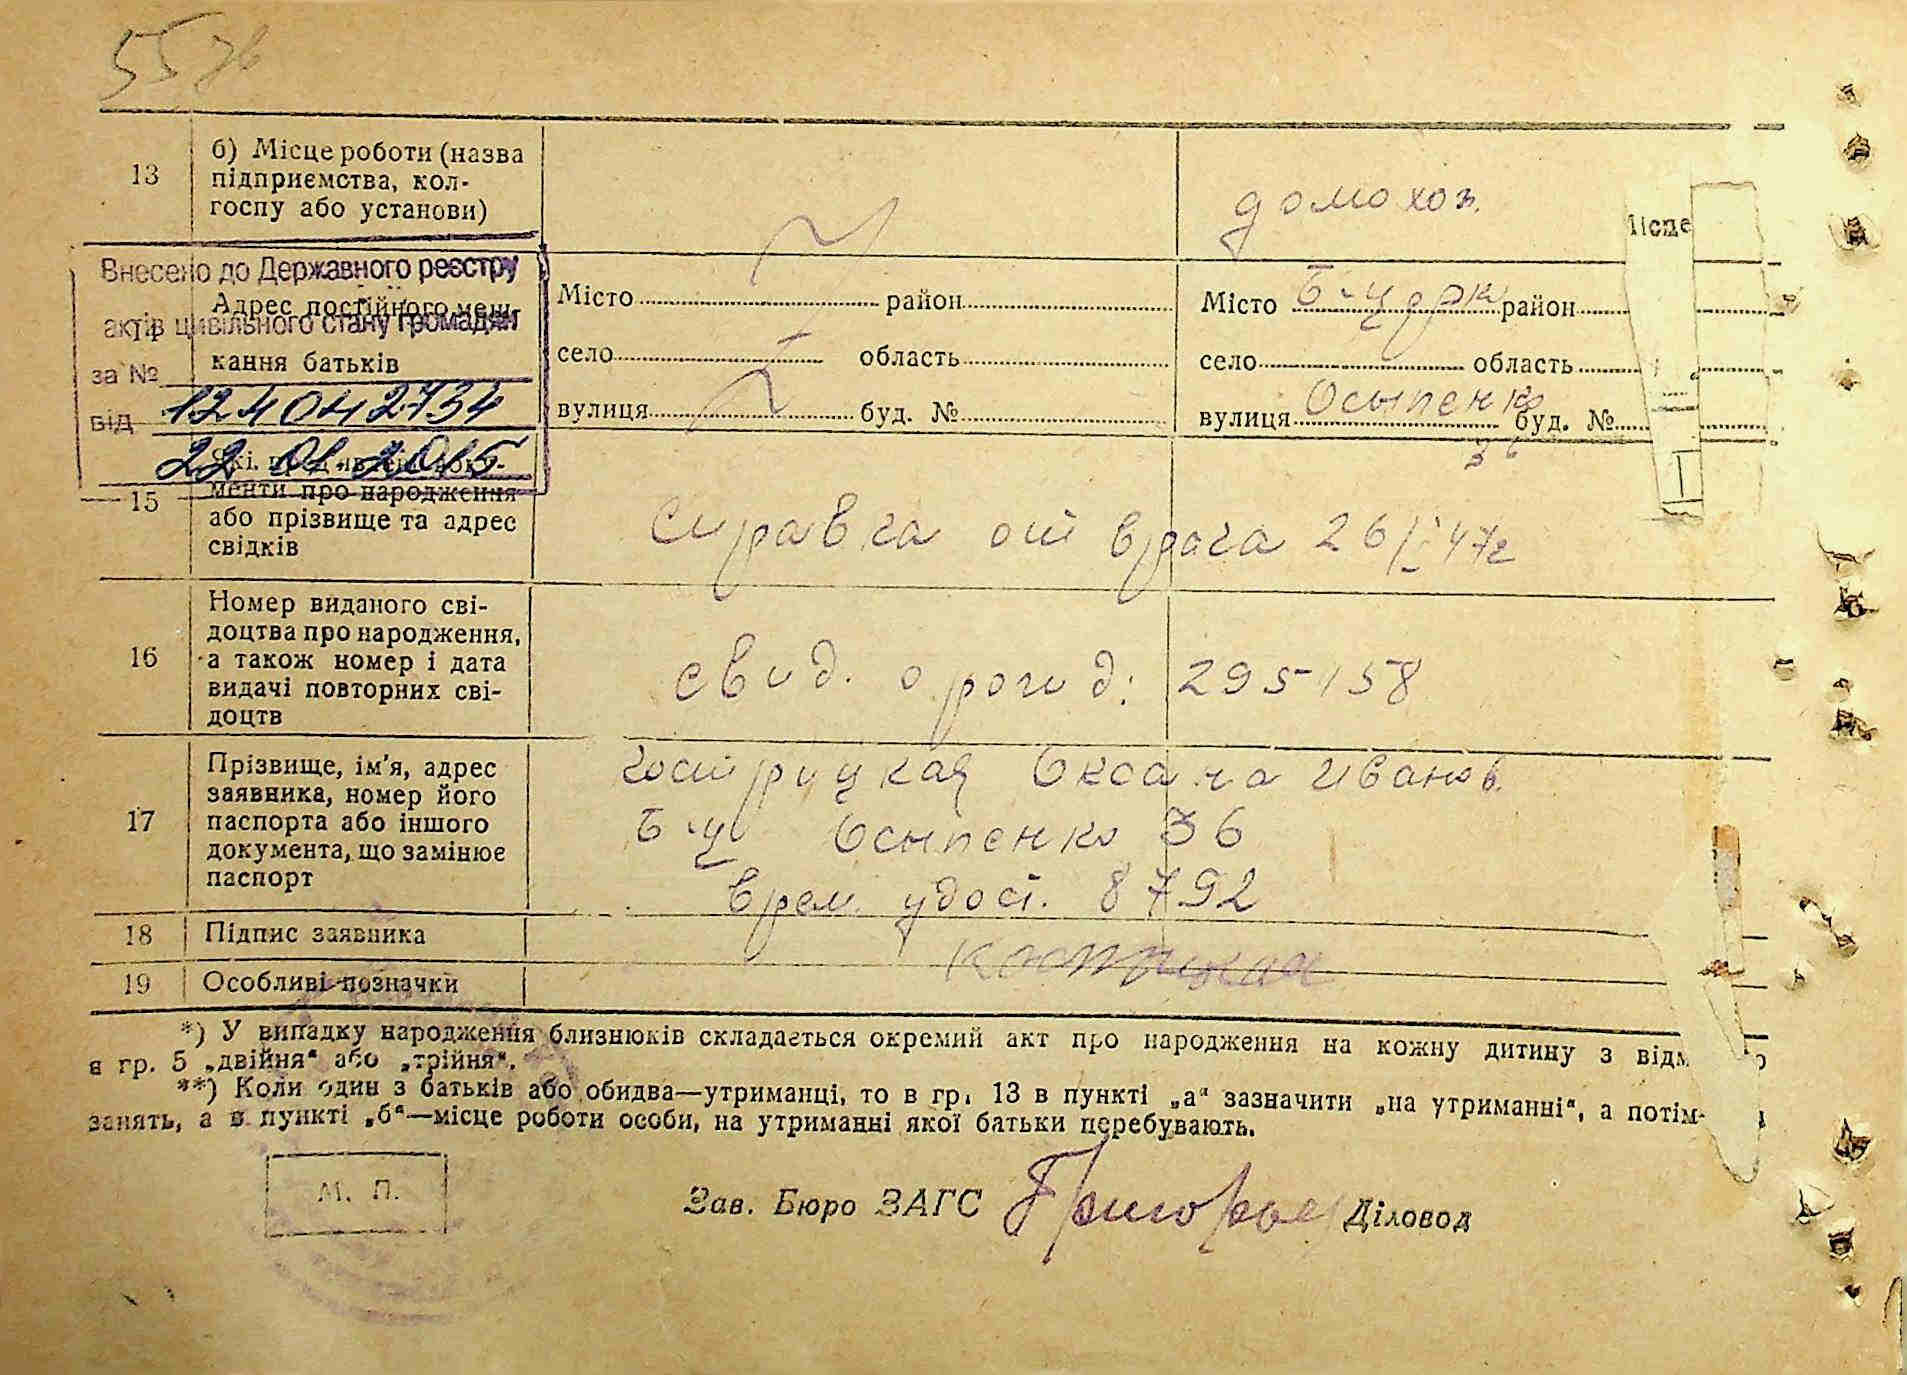 557б
13
б) Місце роботи (назва
підприємства, кол-
госпу або установи)
домохоз.
Місце
Внесено до Державного реєстру
актів цивільного стану громадян
за № 12404042734
від 22 01. 2015
Адрес постійного меш-
кання батьків
Місто район
село область
вулиця буд. №
Місто Б-церк район
село область
вулиця Осыпенко буд. №
36
15
Які пред'явлені доку-
менти про народження
або прізвище та адрес
свідків
Справка от врача 26/I 47г
16
Номер виданого сві-
доцтва про народження,
а також номер і дата
видачі повторних сві-
доцтв
свид. о рожд: 295158
17
Прізвище, ім'я, адрес
заявника, номер його
паспорта або іншого
документа, що замінює
паспорт
Костріцкая Оксана Иванов.
Б-ц Осыпенко 36
Врем. удост. 8792
18
Підпис заявника
Кострицкая
19
Особливі позначки
*) У випадку народження близнюків складається окремий акт про народження на кожну дитину з відм
в гр. 5 „двійня“ або „трійня“.
**) Коли один з батьків або обидва—утриманці, то в гр. 13 в пункті „а“ зазначити „на утриманні“, а потім
занять, а в пункті „б“—місце роботи особи, на утриманні якої батьки перебувають.
М. П.
Зав. Бюро ЗАГС Діловод